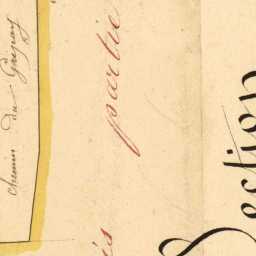 chemin du Grépay
és partie
Section